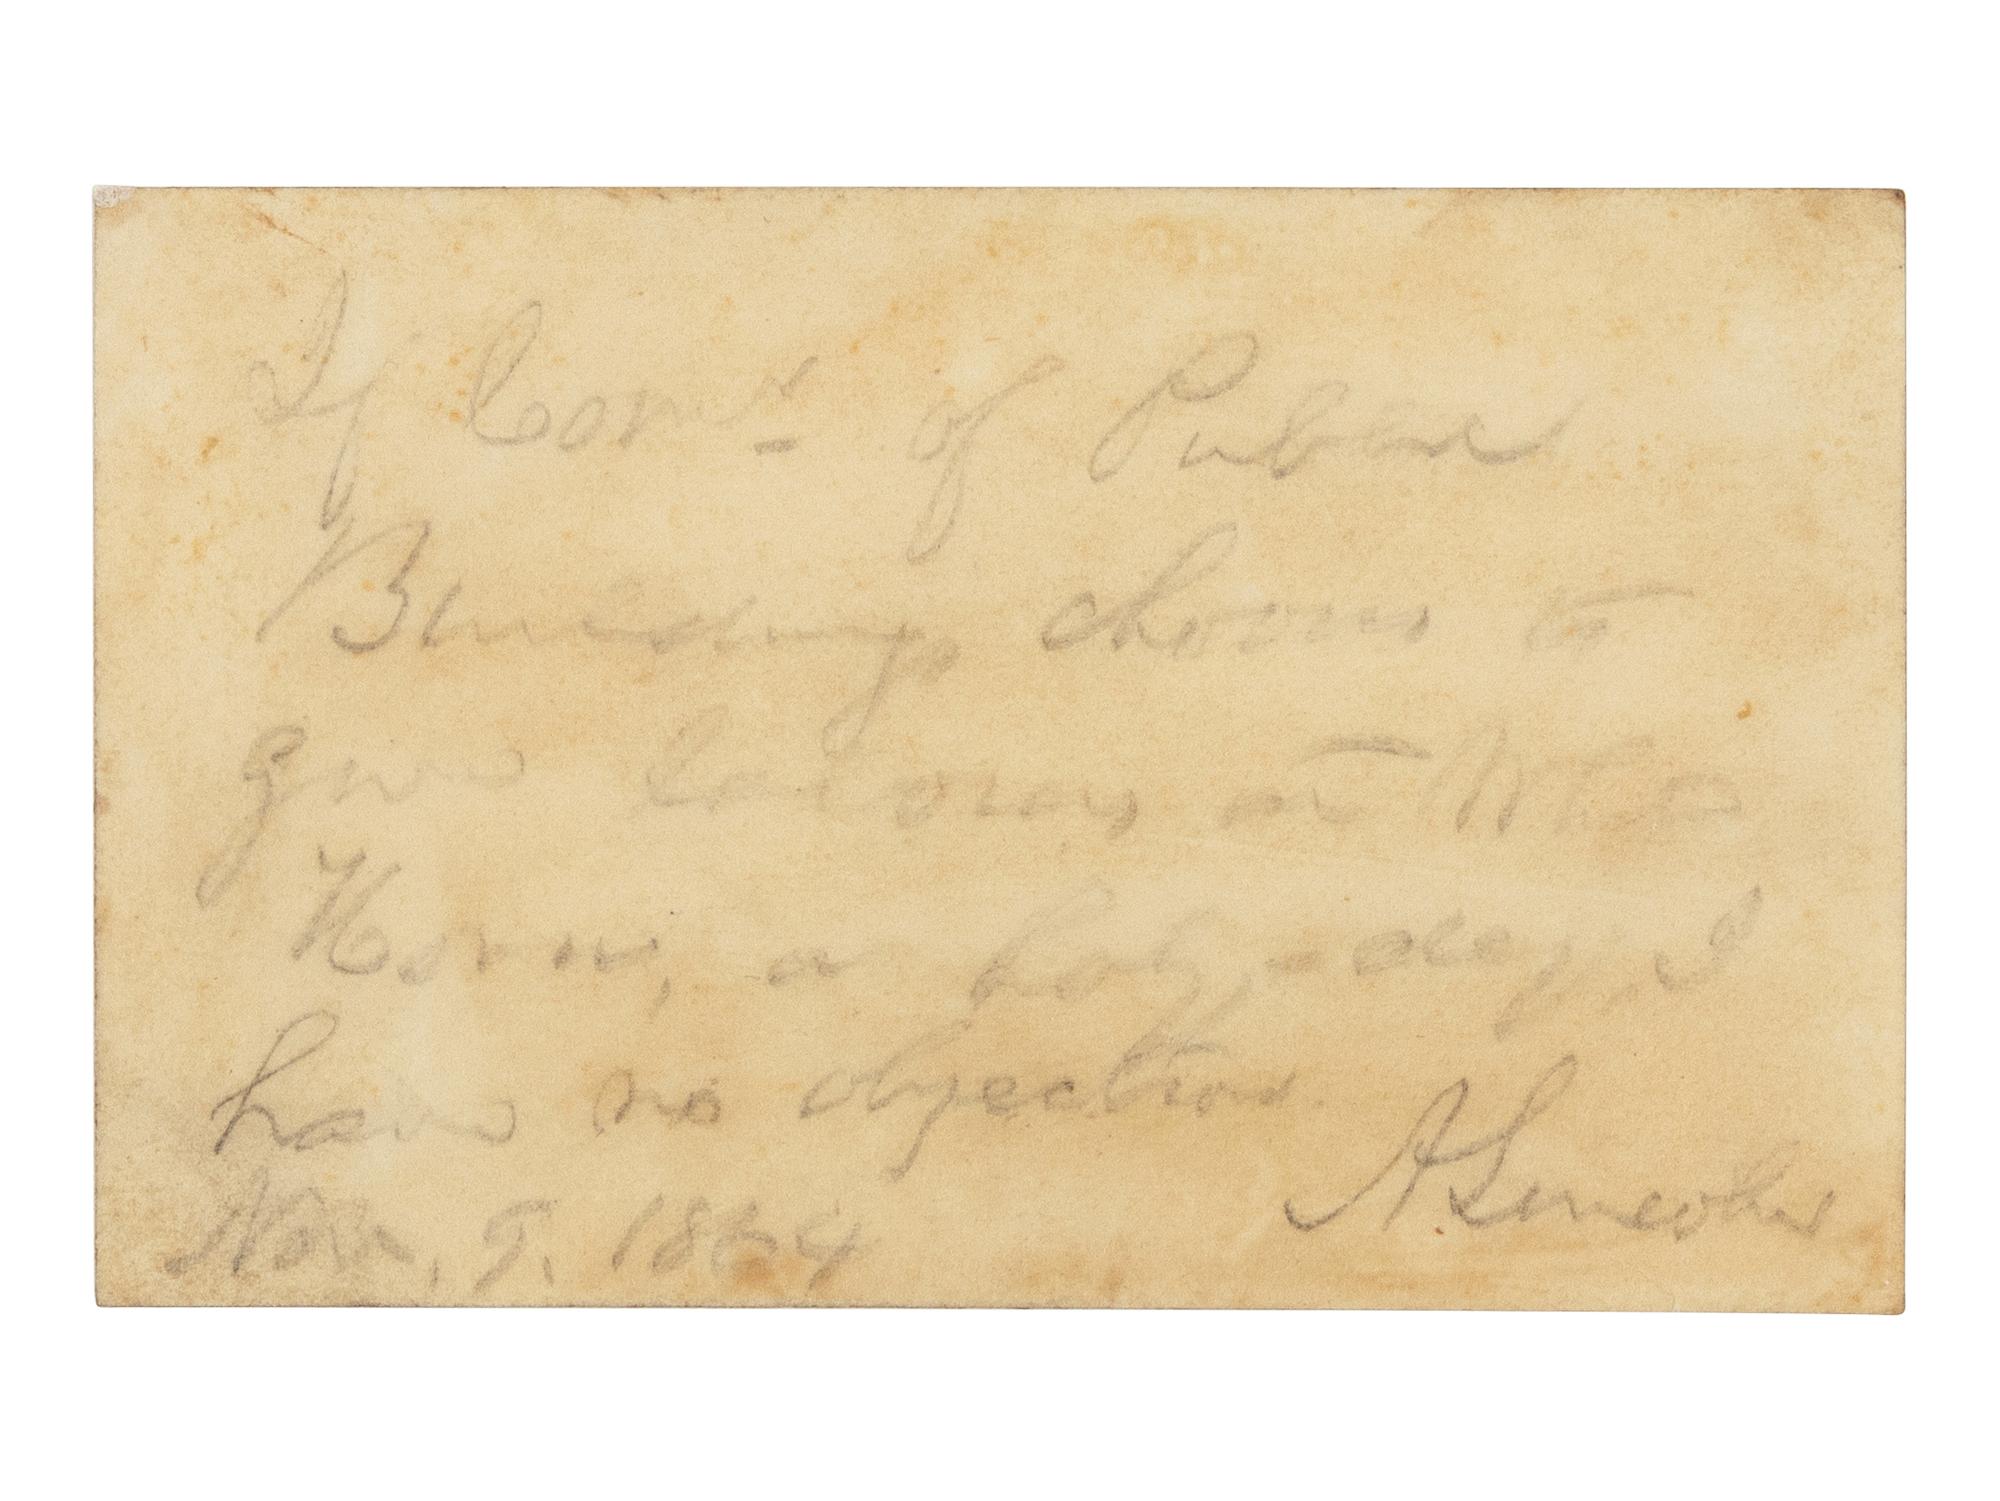 If Com.r of Public
Buildings chooses to
give laborers at White
House, a holy-day, I
have no objection.
A Lincoln
Nov, 5. 1864